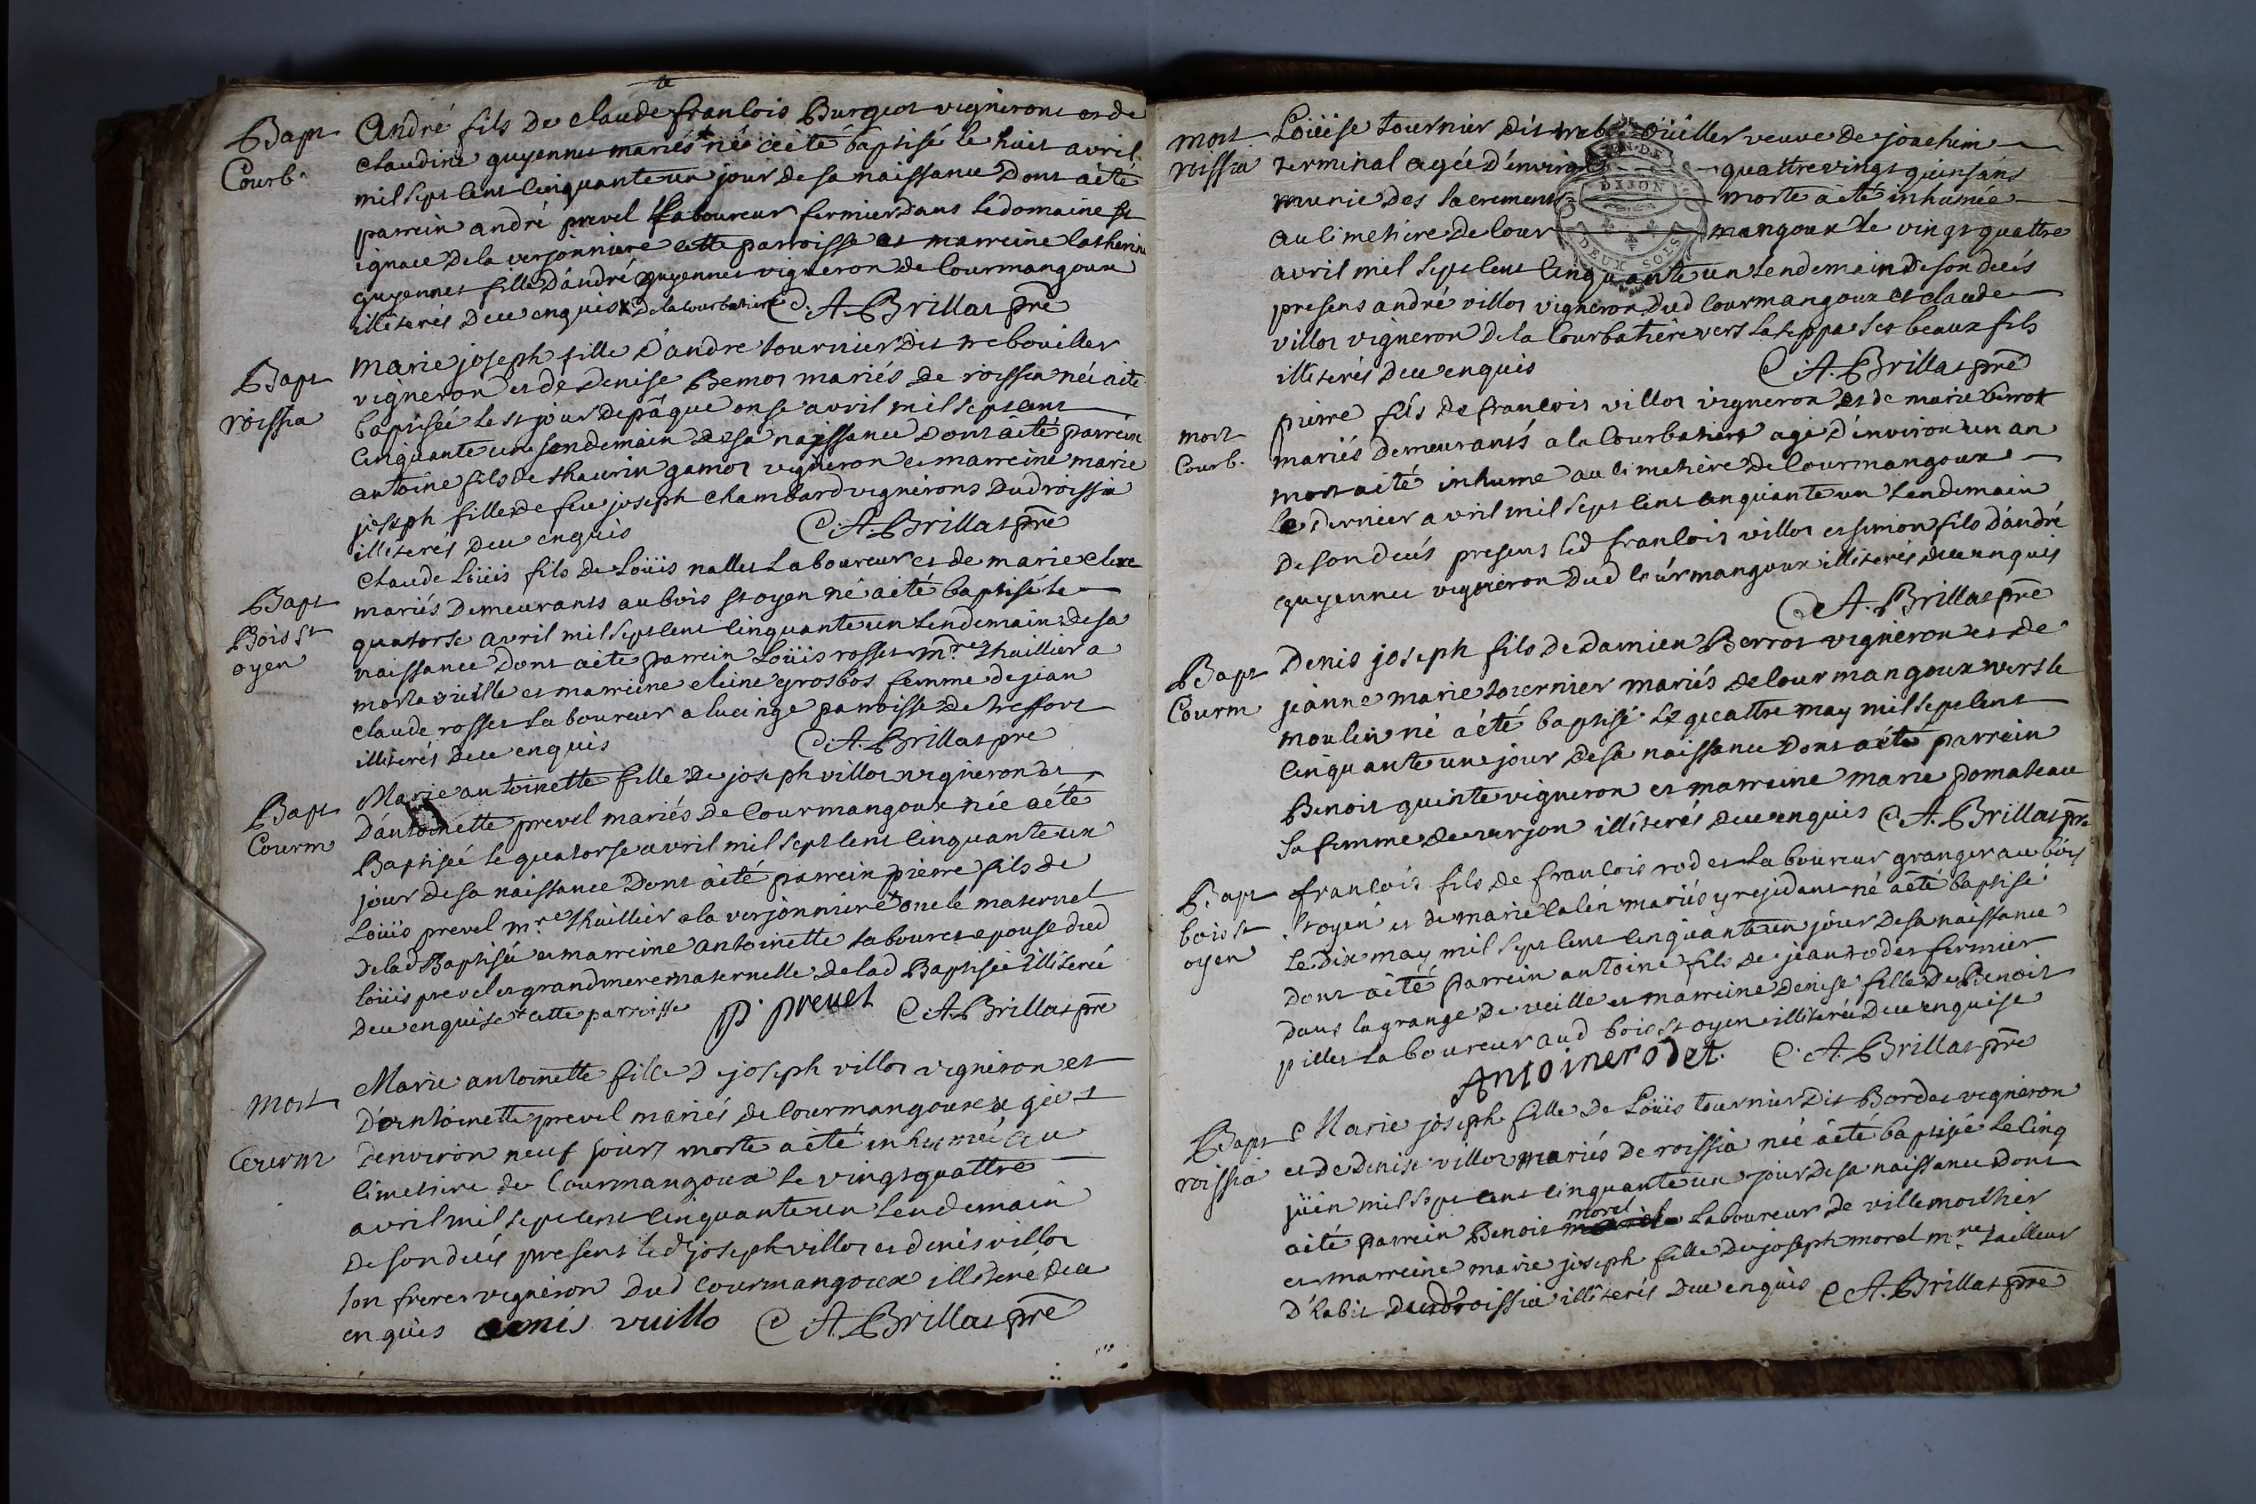 Bapt
Courb.
André fils de claude francois Burgiot vigneront et de
claudine guyennet mariés + né aété baptisé le huit avril
mil sept cent cinquante un jour de sa naissance dont aété
parrein andré prevel laboureur fermier dans le domaine st
ignace de la verjonniere cette parroisse et marreine catherine
guyennet fille d'andré guyennet vigneron de Courmangoux
illiterés deu enquis + de la courbatiere C. A. Brillat prê
Bapt
roissia
marie joseph fille d'andre tournier dit trebouiller
vigneron et de denise Bemot mariés de roissia néé aété
baptiséé le st jour de pâque onse avril mil sept cent
cinquante un lendemain de sa naissance dont aété parrein
antoine fils de thaurin gamot vigneron et marreine marie
joseph fille de feu joseph chambard vignerons dud roissia
illiterés deu enquis C. A. Brillat prê
Bapt
Bois st
oyen
Claude Loüis fils de Loüis nallet laboureur et de marie clere
mariés demeurants au bois st oyen né aété baptisé le
quatorse avril mil sept cent cinquante un lendemain de sa
naissance dont aété parrein Loüis rosset mre thuillier a
morte vieille et marreine cleine grosbos femme de jean
claude rosset laboureur a lucinge parroisse de treffort
illiterés deu enquis C. A. Brillat prê
Bapt
Courm
Marie antoinette fille de joseph villot vigneron et
d'antoinette prevel mariés de Courmangoux néé aété
Baptiséé le quatorse avril mil sept cent cinquante un
jour de sa naissance dont aété parrein pierre fils de
Loüis prevel mre thuillier a la verjonniere + oncle maternel
de lad Baptiséé et marreine antoinette labouret epouse dud
loüis prevel et grandmere maternelle de lad Baptiséé illiteréé
deu enquise + cette parroisse p prevel C. A. Brillat prê
Mort
Courm
Marie antoinette fille de joseph villot vigneron et
d'antoinette prevel mariés de Courmangoux agéé
d'environ neuf jours morte aété inhuméé au
cimetiere de Courmangoux le vingt quattre
avril mil sept cent cinquante un lendemain
de son decés present led joseph villot et denis villot
son frere vigneron dud courmangoux illiteré deu
enquis denis vuillo C. A. Brillat prê
mort
roissia
Loüise tournier dit trebouiller veuve de joachim
terminal agéé d'environ quattrevingt quins ans
munie des sacrements morte aété inhuméé
DIJON
DEUX SOLS
au cimetiere de Courmangoux le vingt quattre
avril mil sept cent cinquante un lendemain de son decés
presens andré villot vigneron dud Courmangoux et claude
villot vigneron de la Courbatiere vers la seppa ses beaux fils
illiterés deu enquis C. A. Brillat prê
mort
Courb.
pierre fils de francois villot vigneron et de marie berrot
mariés demeurants a la Courbatiere agé d'environ un an
mort aété inhumé au cimetiere de Courmangoux
le dernier avril mil sept cent cinquante un lendemain
de son decés presens led francois villot et simon fils d'andré
guyennet vigneron dud Courmangoux illiterés deu enquis
C. A. Brillat prê
Bapt
Courm
Denis joseph fils de damien Berrot vigneron et de
jeanne marie tournier mariés de Courmangoux vers le
moulin né aété baptisé le quattre may mil sept cent
cinquante un jour de sa naissance dont aété parrein
Benoit quinte vigneron et marreine marie pomateau
sa femme de verjon illiterés deu enquis C. A. Brillat prê
Bapt
bois st
oyen
francois fils de francois rodet laboureur granger au bois
st oyen et de marie lalén mariés y residant né aété baptisé
le dix may mil sept cent cinquante un jour de sa naissance
dont aété parrein antoine fils de jean rodet fermier
dans la grange de veille et marreine denise fille de Benoit
pillet laboureur aud bois st oyen illiteréé deu enquise
Antoine rodet C. A. Brillat prê
Bapt
roissia
Marie joseph fille de Loüis tournier dit Bordet vigneron
et de denise villot mariés de roissia néé aété baptiséé le cinq
jüin mil sept cent cinquante un jour de sa naissance dont
aété parrein Benoit morel laboureur de villemorthier
et marreine marie joseph fille de joseph morel mre tailleur
d'habit dud roissia illiterés deu enquis C. A. Brillat prê